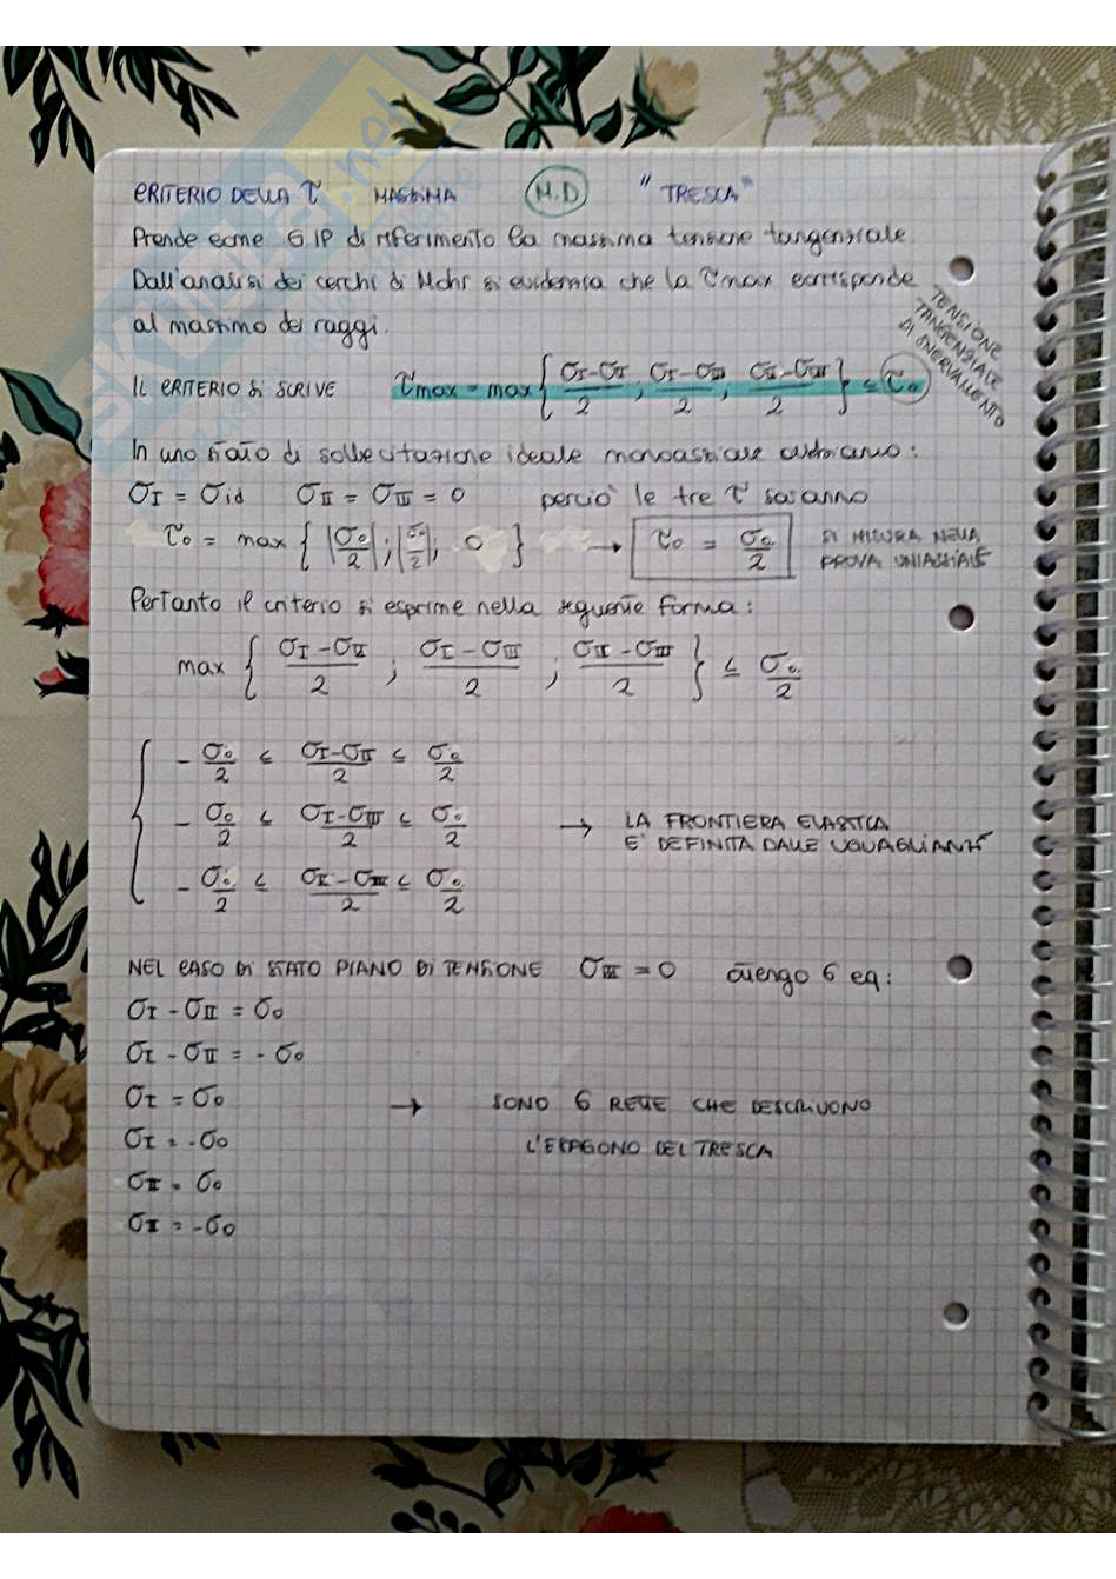 CRITERIO DELLA τ MASSIMA (M.D) "TRESCA"
Prende come GIP di riferimento la massima tensione tangenziale.
Dall'analisi dei cerchi di Mohr si evidenzia che la τmax corrisponde
al massimo dei raggi.
TENSIONE
TANGENZIALE
DI SNERVAMENTO
IL CRITERIO SI SCRIVE τmax = max { (σI-σII)/2 ; (σI-σIII)/2 ; (σII-σIII)/2 } ≤ τ0
In uno stato di sollecitazione ideale monoassiale abbiamo:
σI = σid σII = σIII = 0 perciò le tre τ saranno
τ0 = max { |σ0/2| ; |σ0/2| ; 0 } → τ0 = σ0/2 SI MISURA NELLA
PROVA UNIASSIALE
Pertanto il criterio si esprime nella seguente forma:
max { (σI-σII)/2 ; (σI-σIII)/2 ; (σII-σIII)/2 } ≤ σ0/2
- σ0/2 ≤ (σI-σII)/2 ≤ σ0/2
- σ0/2 ≤ (σI-σIII)/2 ≤ σ0/2 → LA FRONTIERA ELASTICA
E' DEFINITA DALLE UGUAGLIANZE
- σ0/2 ≤ (σII-σIII)/2 ≤ σ0/2
NEL CASO DI STATO PIANO DI TENSIONE σIII = 0 ottengo 6 eq:
σI - σII = σ0
σI - σII = - σ0
σI = σ0 → SONO 6 RETTE CHE DESCRIVONO
σI = -σ0 L'ESAGONO DEL TRESCA
σII = σ0
σII = -σ0